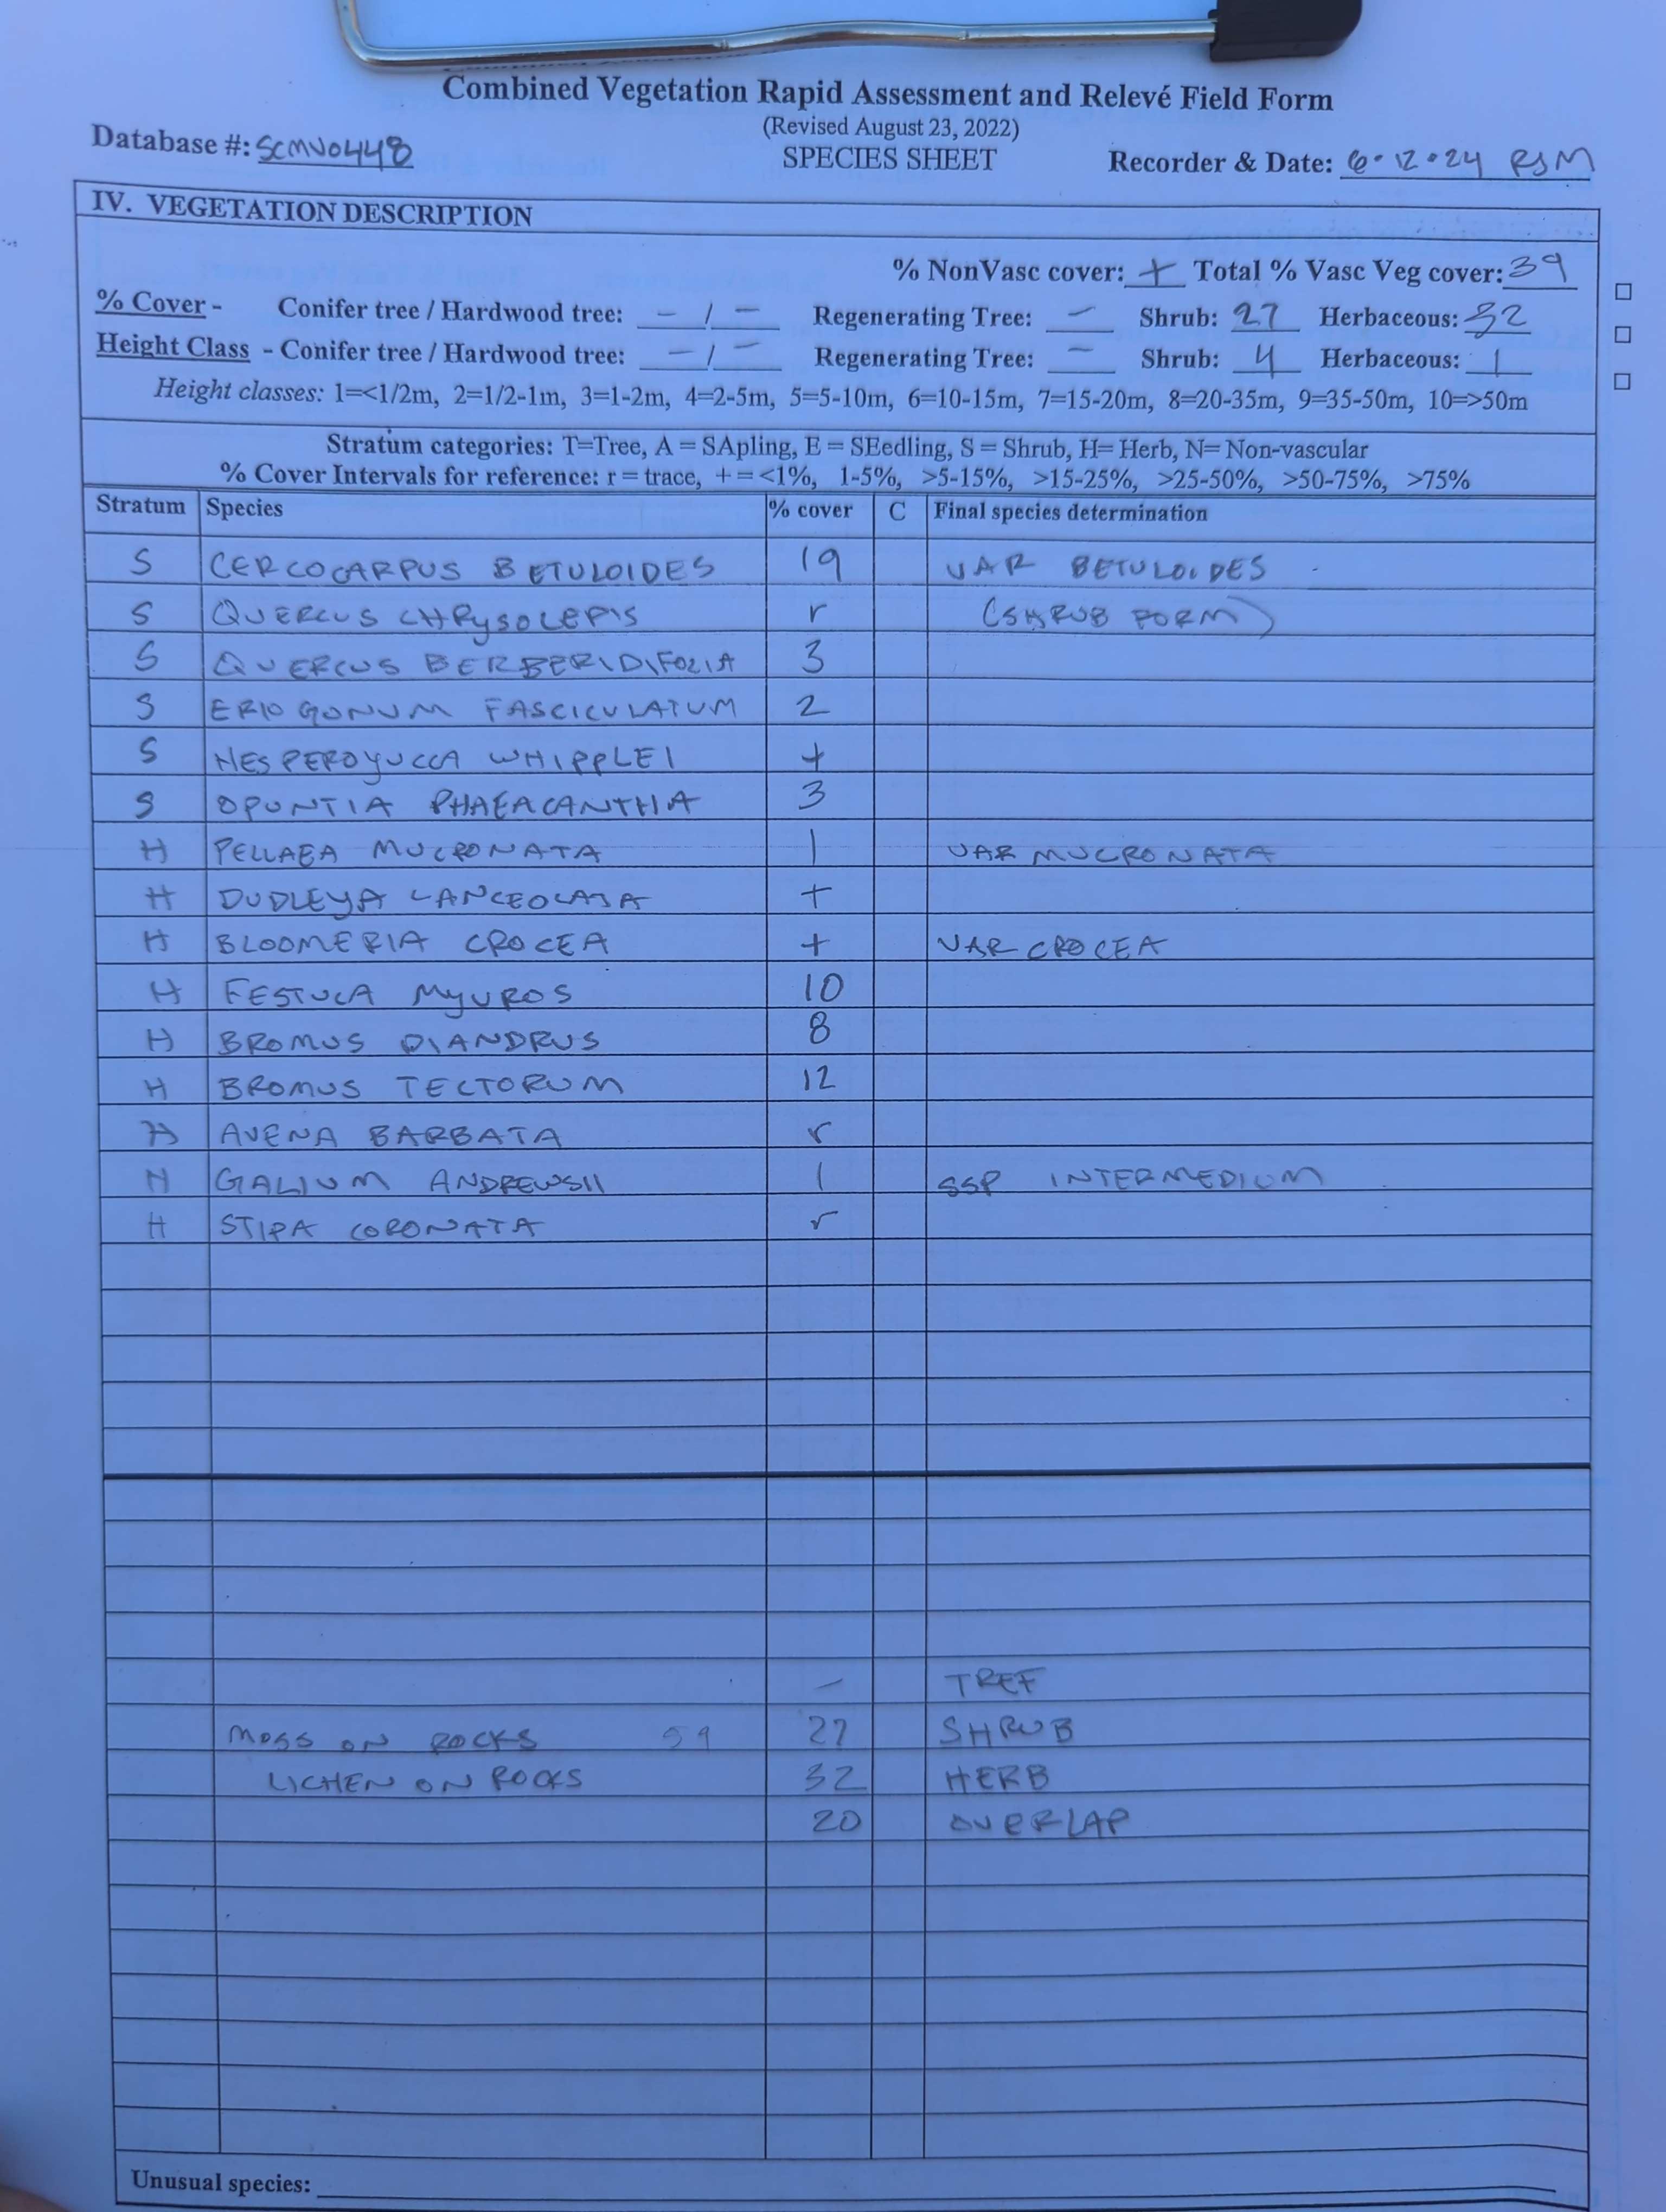 Combined Vegetation Rapid Assessment and Relevé Field Form
(Revised August 23, 2022)
Database #: SCMV0448 SPECIES SHEET Recorder & Date: 6·12·24 RSM
IV. VEGETATION DESCRIPTION
% NonVasc cover: + Total % Vasc Veg cover: 39
% Cover - Conifer tree / Hardwood tree: - / - Regenerating Tree: - Shrub: 27 Herbaceous: 32
Height Class - Conifer tree / Hardwood tree: - / - Regenerating Tree: - Shrub: 4 Herbaceous: 1
Height classes: 1=<1/2m, 2=1/2-1m, 3=1-2m, 4=2-5m, 5=5-10m, 6=10-15m, 7=15-20m, 8=20-35m, 9=35-50m, 10=>50m
Stratum categories: T=Tree, A = SApling, E = SEedling, S = Shrub, H= Herb, N= Non-vascular
% Cover Intervals for reference: r = trace, + = <1%, 1-5%, >5-15%, >15-25%, >25-50%, >50-75%, >75%
Stratum Species % cover C Final species determination
S CERCOCARPUS BETULOIDES 19 VAR BETULOIDES
S QUERCUS CHRYSOLEPIS r (SHRUB FORM)
S QUERCUS BERBERIDIFOLIA 3
S ERIOGONUM FASCICULATUM 2
S HESPEROYUCCA WHIPPLEI +
S OPUNTIA PHAEACANTHA 3
H PELLAEA MUCRONATA 1 VAR MUCRONATA
H DUDLEYA LANCEOLATA +
H BLOOMERIA CROCEA + VAR CROCEA
H FESTUCA MYUROS 10
H BROMUS DIANDRUS 8
H BROMUS TECTORUM 12
H AVENA BARBATA r
H GALIUM ANDREWSII 1 SSP INTERMEDIUM
H STIPA CORONATA r
- TREE
MOSS ON ROCKS 59 27 SHRUB
LICHEN ON ROCKS 32 HERB
20 OVERLAP
Unusual species: